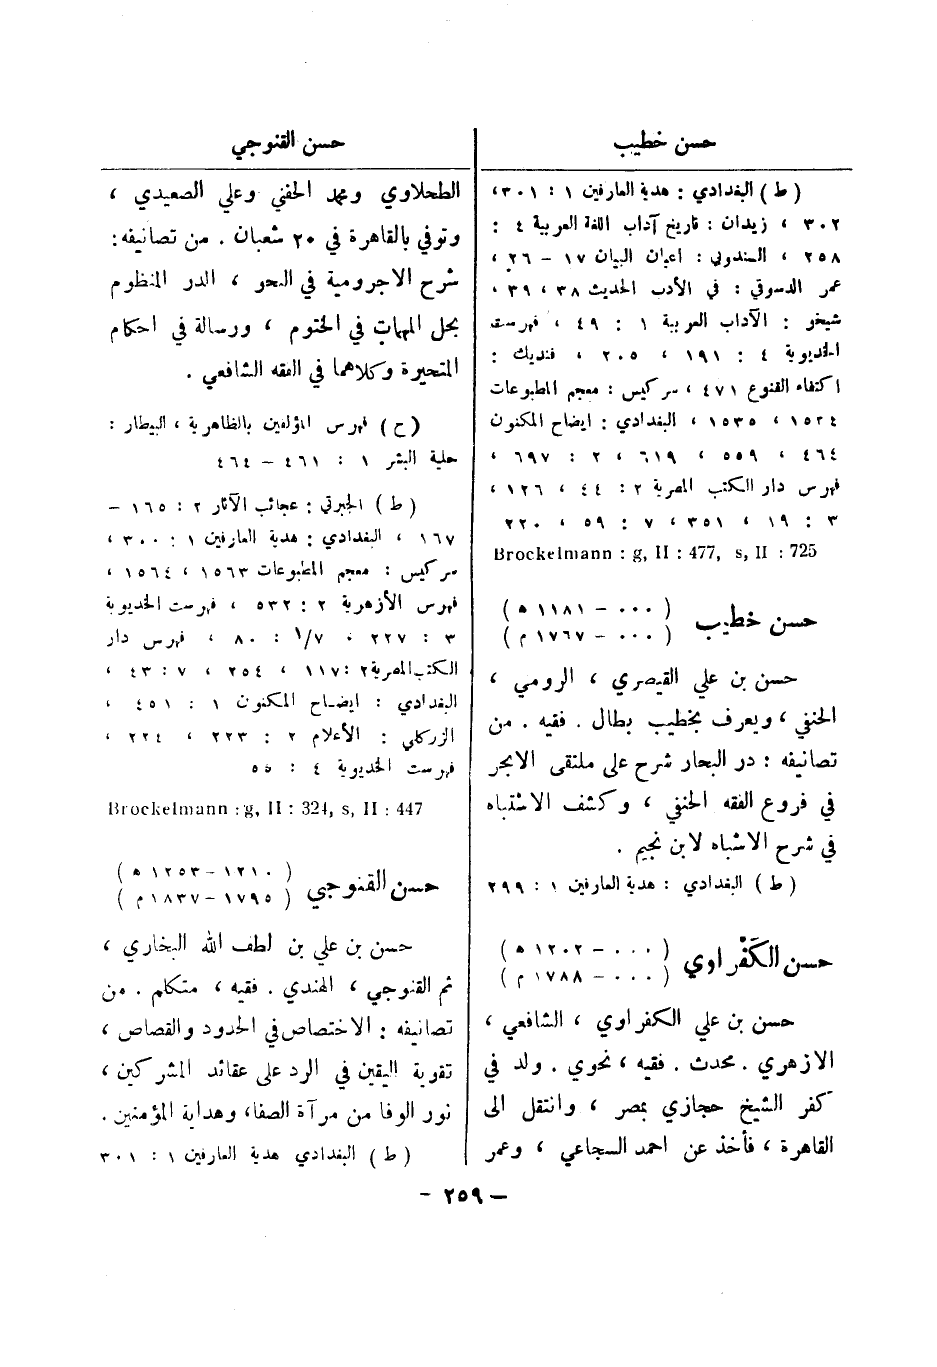 حسن خطيب
( ط ) البغدادي : هدية العارفين ١ : ٣٠١ ،
٣٠٢ ، زيدان : تاريخ آداب اللغة العربية ٤ :
٢٥٨ ، السندوبي : اعيان البيان ١٧ – ٢٦ ،
عمر الدسوقي : في الأدب الحديث ٣٨ ، ٣٩ ،
شيخو : الآداب العربية ١ : ٤٩ ، فهرست
الخديوية ٤ : ١٩١ ، ٢٠٥ ، فنديك :
اكتفاء القنوع ٤٧١ ، سركيس : معجم المطبوعات
١٥٣٤ ، ١٥٣٥ ، البغدادي : ايضاح المكنون
٤٦٤ ، ٥٥٩ ، ٦١٩ ، ٢ : ٦٩٧ ،
فهرس دار الكتب المصرية ٢ : ٤٤ ، ١٢٦ ،
٣ : ١٩ ، ٣٥١ ، ٧ : ٥٩ ، ٢٢٠
Brockelmann : g, II : 477, s, II : 725
حسن خطيب
( ٠٠٠ – ١١٨١ ه )
( ٠٠٠ – ١٧٦٧ م )
حسن بن علي القيصري ، الرومي ،
الحنفي ، ويعرف بخطيب بطال . فقيه . من
تصانيفه : در البحار شرح على ملتقى الابحر
في فروع الفقه الحنفي ، وكشف الاشتباه
في شرح الاشباه لابن نجيم .
( ط ) البغدادي : هدية العارفين ١ : ٢٩٩
حسن الكَفْراوي
( ٠٠٠ – ١٢٠٢ ه )
( ٠٠٠ – ١٧٨٨ م )
حسن بن علي الكفراوي ، الشافعي ،
الازهري . محدث . فقيه ، نحوي . ولد في
كفر الشيخ حجازي بمصر ، وانتقل الى
القاهرة ، فأخذ عن احمد السجاعي ، وعمر
حسن القنوجي
الطحلاوي ومحمد الحفني وعلي الصعيدي ،
وتوفي بالقاهرة في ٢٠ شعبان . من تصانيفه :
شرح الاجرومية في النحو ، الدر المنظوم
بحل المهمات في الختوم ، ورسالة في احكام
المتحيرة وكلاهما في الفقه الشافعي .
( خ ) فهرس المؤلفين بالظاهرية ، البيطار :
حلية البشر ١ : ٤٦١ – ٤٦٤
( ط ) الجبرتي : عجائب الآثار ٢ : ١٦٥ –
١٦٧ ، البغدادي : هدية العارفين ١ : ٣٠٠ ،
سركيس : معجم المطبوعات ١٥٦٣ ، ١٥٦٤ ،
فهرس الأزهرية ٢ : ٥٣٢ ، فهرست الخديوية
٣ : ٢٢٧ ، ١/٧ : ٨٠ ، فهرس دار
الكتب المصرية ٢ : ١١٧ ، ٢٥٤ ، ٧ : ٤٣ ،
البغدادي : ايضاح المكنون ١ : ٤٥١ ،
الزركلي : الأعلام ٢ : ٢٢٣ ، ٢٢٤ ،
فهرست الخديوية ٤ : ٥٥
Brockelmann : g, II : 324, s, II : 447
حسن القنوجي
( ١٢١٠ – ١٢٥٣ ه )
( ١٧٩٥ – ١٨٣٧ م )
حسن بن علي بن لطف الله البخاري ،
ثم القنوجي ، الهندي . فقيه ، متكلم . من
تصانيفه : الاختصاص في الحدود والقصاص ،
تقوية اليقين في الرد على عقائد المشركين ،
نور الوفا من مرآة الصفا ، وهداية المؤمنين .
( ط ) البغدادي هدية العارفين ١ : ٣٠١
– ٢٥٩ –